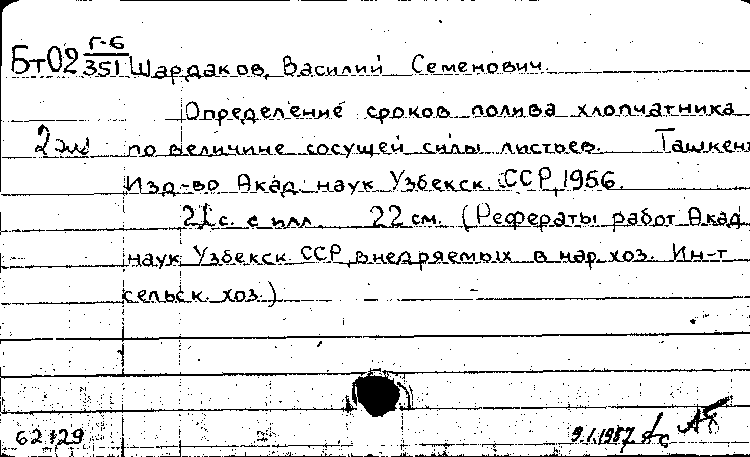 Бт02 Г-6/351 Шардаков, Василий Семенович.
Определение сроков полива хлопчатника
2 экз по величине сосущей силы листьев. Ташкент
Изд-во Акад. наук Узбекск. ССР, 1956.
21 с. с илл. 22 см. (Рефераты работ Акад.
наук Узбекск. ССР, внедряемых в нар. хоз. Ин-т
сельск. хоз.)
62129 9.1.1987